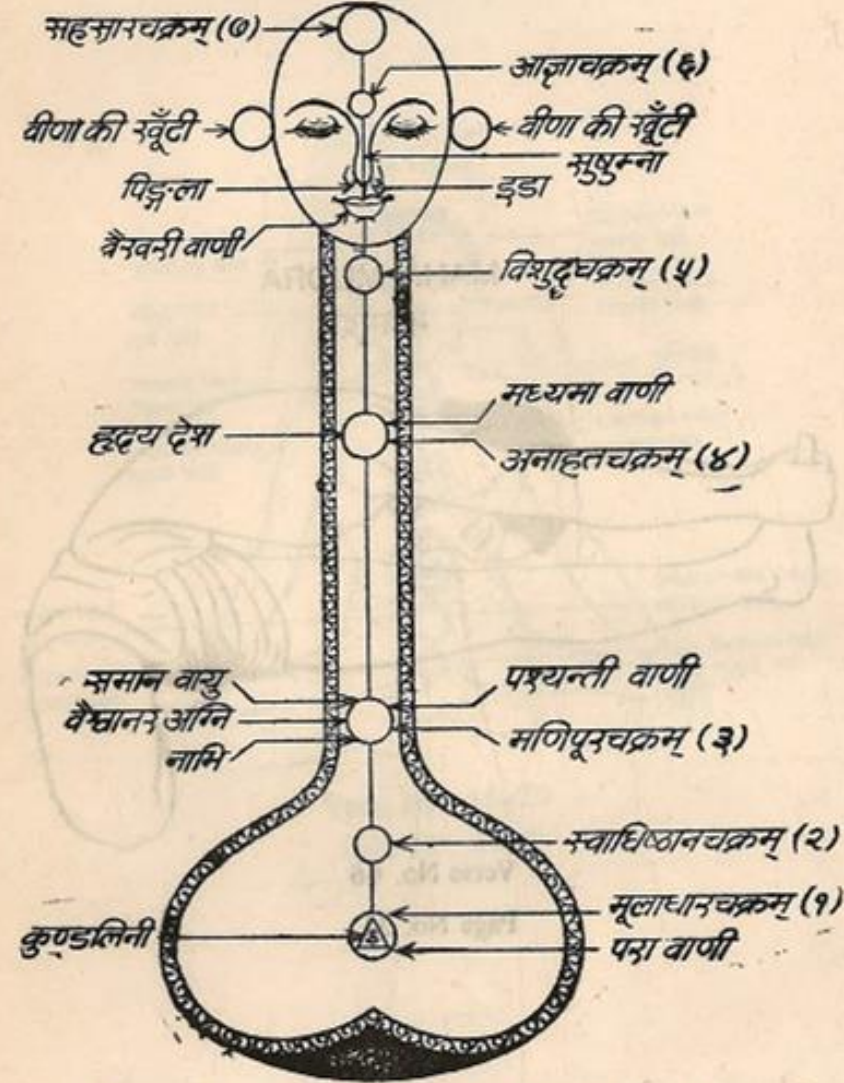 सहस्रारचक्रम् (७)
आज्ञाचक्रम् (६)
वीणा की खूँटी
वीणा की खूँटी
सुषुम्ना
पिङ्गला
इडा
वैखरी वाणी
विशुद्धचक्रम् (५)
मध्यमा वाणी
हृदय देश
अनाहतचक्रम् (४)
समान वायु
पश्यन्ती वाणी
वैश्वानर अग्नि
मणिपूरचक्रम् (३)
नाभि
स्वाधिष्ठानचक्रम् (२)
Verse No.
मूलाधारचक्रम् (१)
Page No.
कुण्डलिनी
परा वाणी